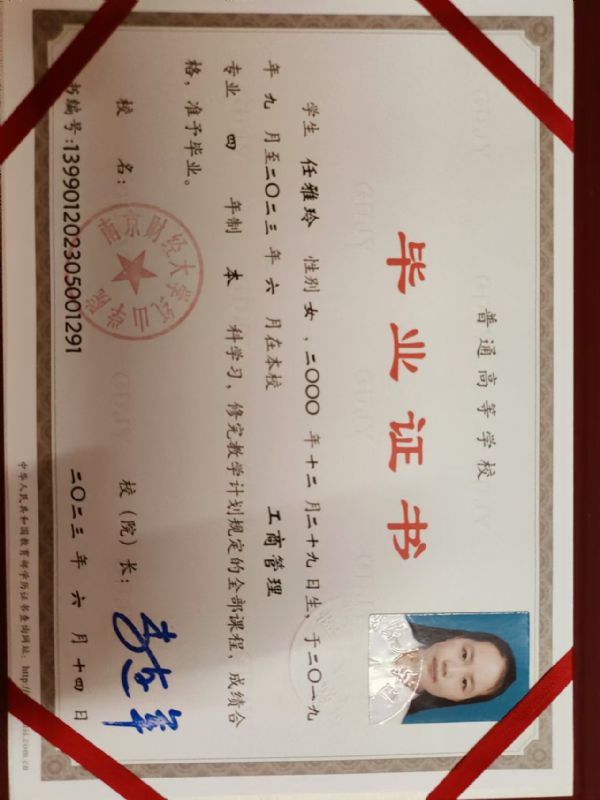 普通高等学校
毕业证书
学生 任雅玲 性别 女，二〇〇〇 年 十二 月 二十九 日生，于二〇一九
年 九 月至二〇二三 年 六 月在本校 工商管理
专业 四 年制 本 科学习，修完教学计划规定的全部课程，成绩合
格，准予毕业。
校 名：
南京财经大学红山学院
校（院）长：
书编号：139901202305001291
二〇二三 年 六 月 十四 日
中华人民共和国教育部学历证书查询网址：http://